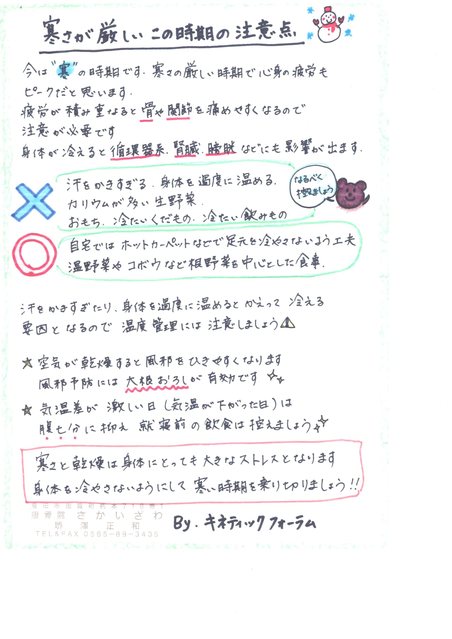 寒さが厳しいこの時期の注意点
今は"寒"の時期です。寒さの厳しい時期で心身の疲労も
ピークだと思います。
疲労が積み重なると骨や関節を痛めやすくなるので
注意が必要です
身体が冷えると循環器系、腎臓、膀胱などにも影響が出ます。
汗をかきすぎる、身体を過度に温める、
カリウムが多い生野菜、
おもち、冷たいくだもの、冷たい飲みもの
なるべく
控えましょう
自宅ではホットカーペットなどで足元を冷やさないよう工夫
温野菜やゴボウなど根野菜を中心とした食事、
汗をかきすぎたり、身体を過度に温めるとかえって冷える
要因となるので温度管理には注意しましょう
★空気が乾燥すると風邪をひきやすくなります
風邪予防には大根おろしが有効です
★気温差が激しい日(気温が下がった日)は
腹七分に抑え就寝前の飲食は控えましょう
寒さと乾燥は身体にとっても大きなストレスとなります
身体を冷やさないようにして寒い時期を乗り切りましょう!!
さかいざわ
正和
TEL&FAX 0585-89-3435
By.キネティックフォーラム